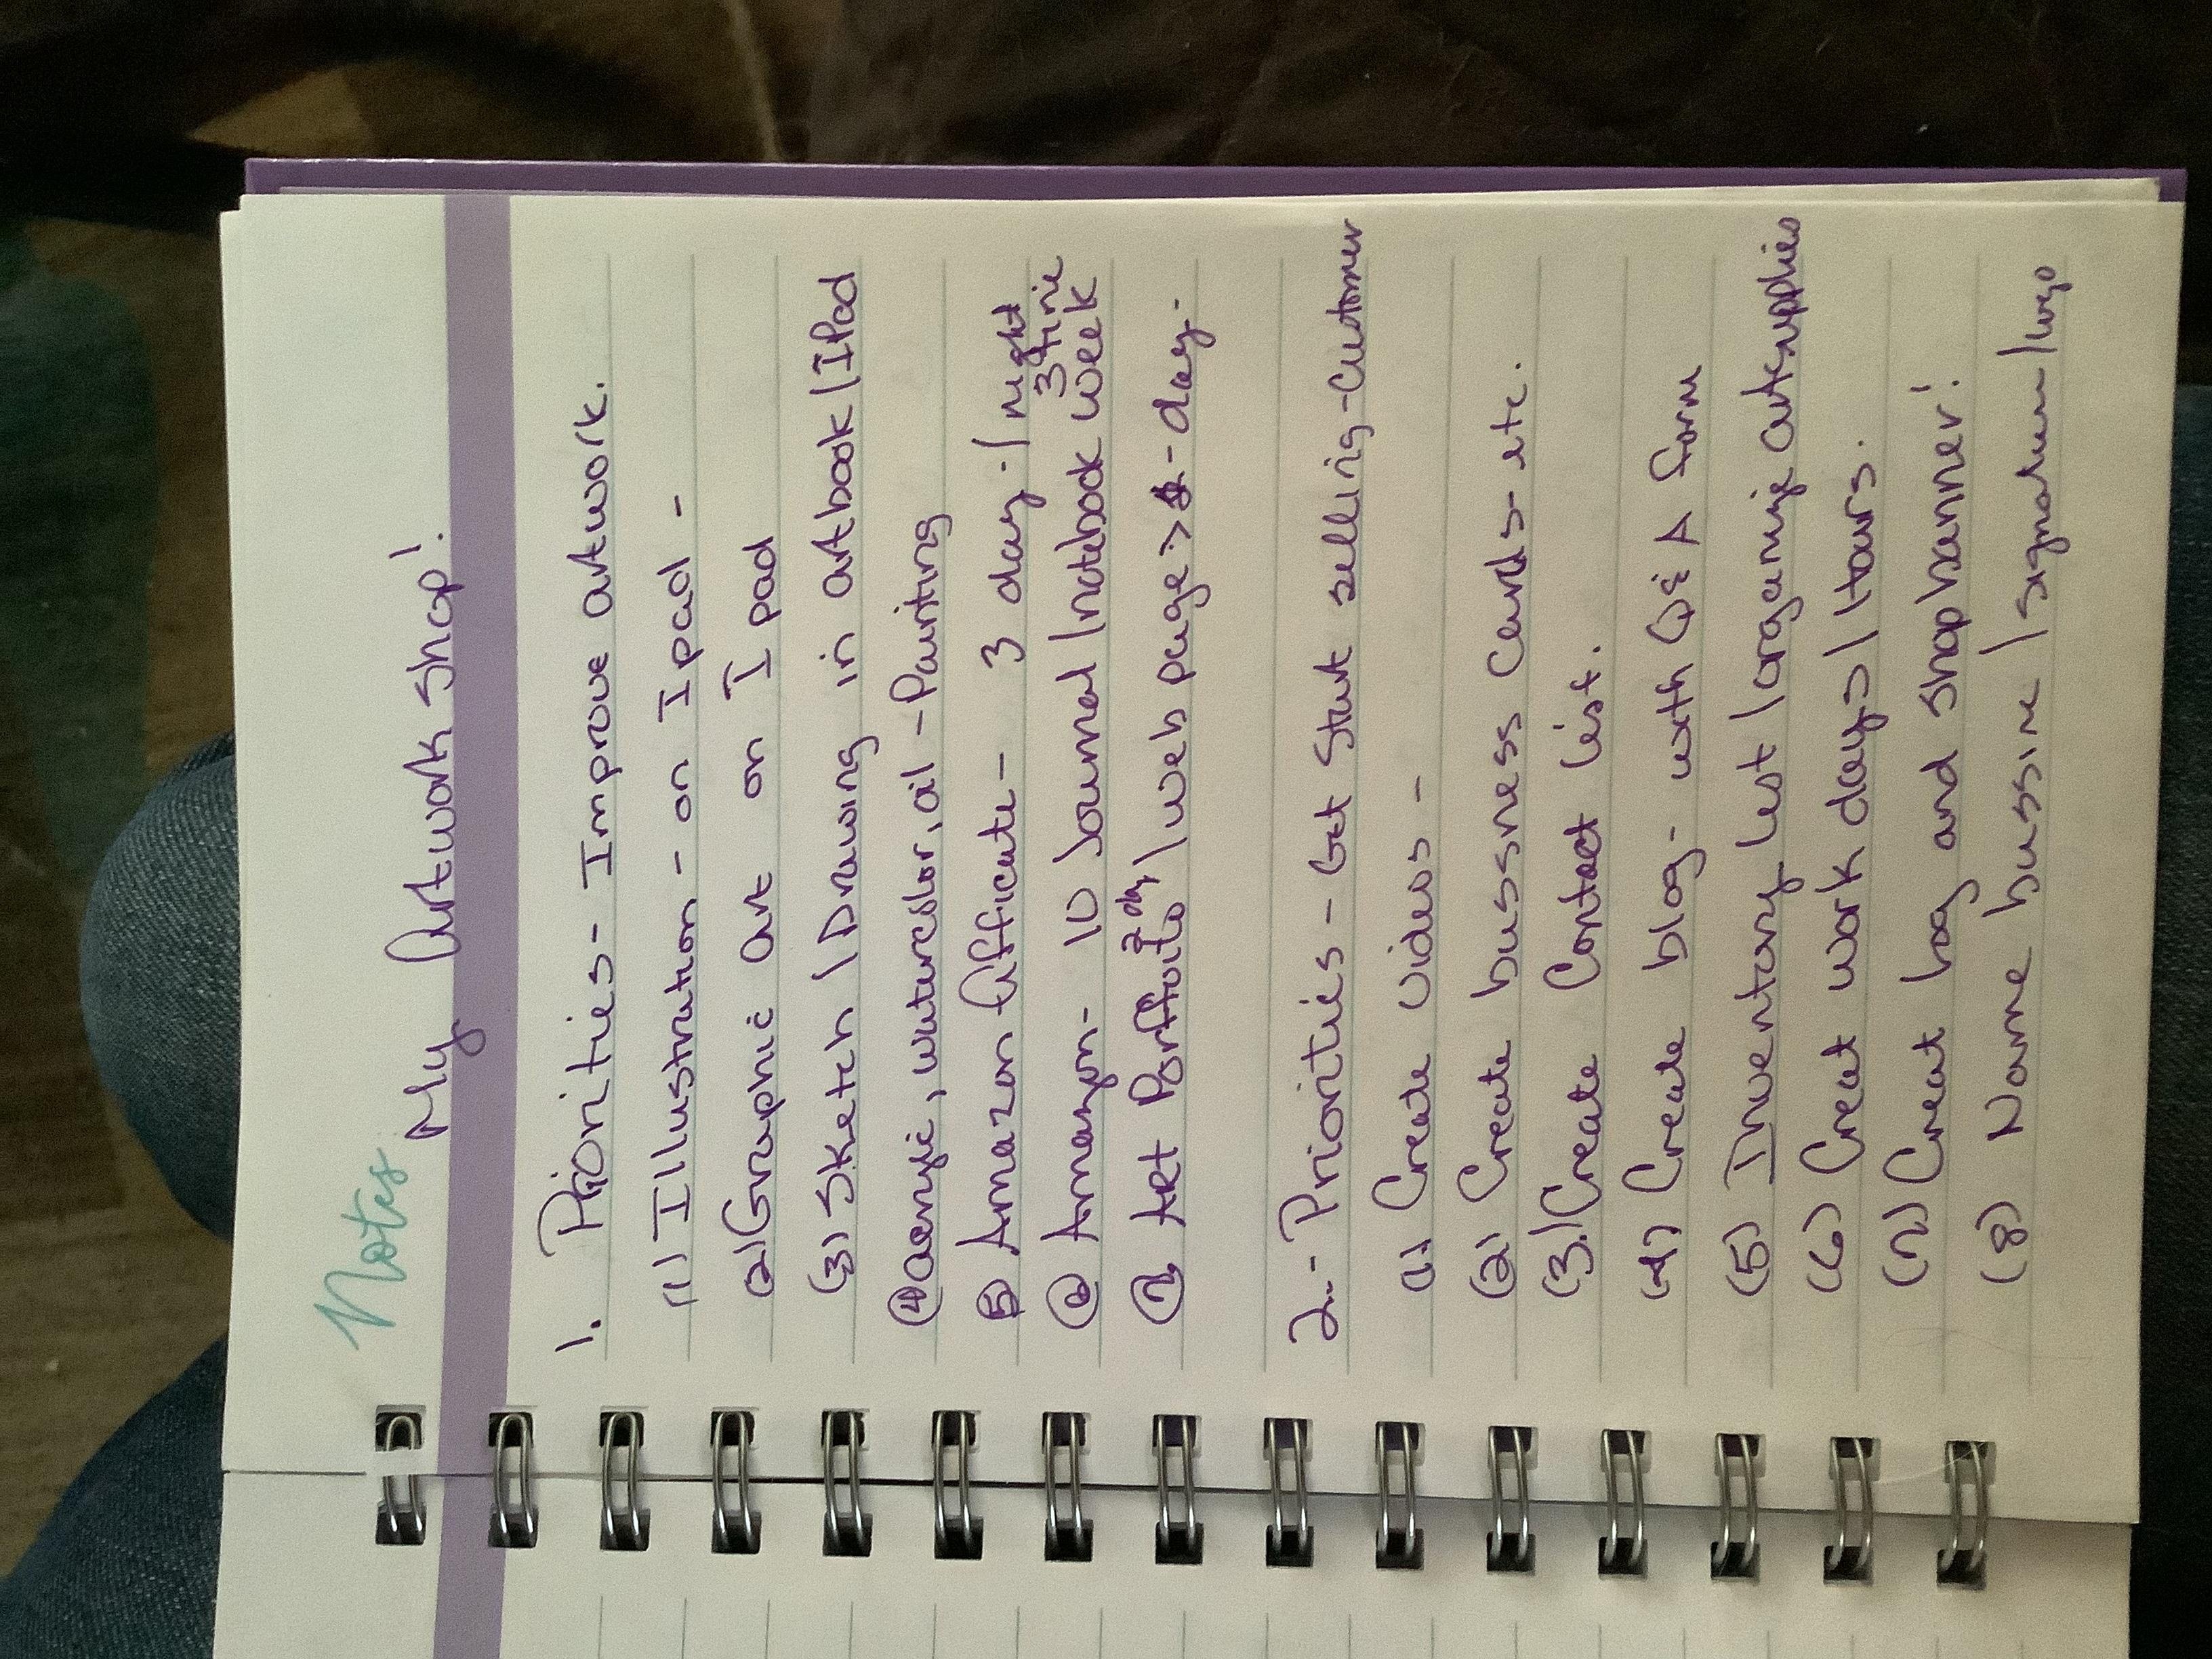 Notes
My Artwork Shop!
1. Priorities - Improve artwork.
(1) Illustration - on Ipad -
(2) Graphic art on I pad
(3) Sketch / Drawing in artbook / IPad
(4) , watercolor, oil - Painting
(5) Amazon - 3 day - / night
(6) Amazon - 10 Journal / notebook week 3 time
(7) ART 2 day / web page > - day -
2. - Priorities - Get Start selling - Customer
(1). Create videos -
(2) Create bussness cards - etc.
(3.) Create Contact list.
(4) Create blog - with Q & A form
(5) Inventory list /
(6) Creat work days / Hours.
(7) Creat and shop banner!
(8) Name bussine / /